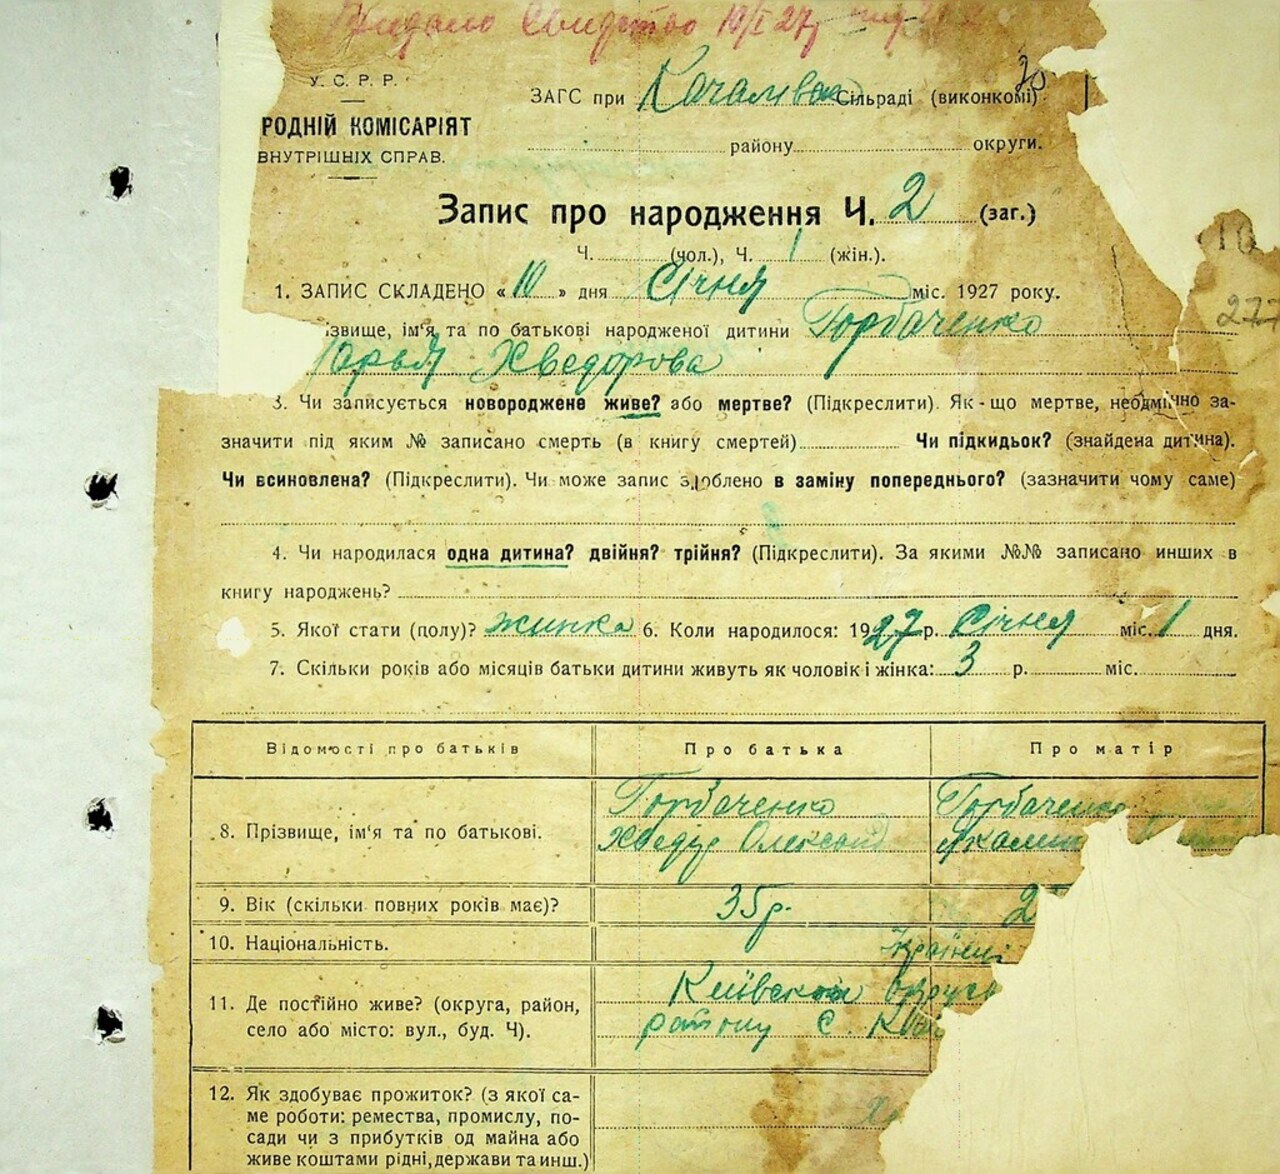 Видано Свидетво 10/I 27
У. С. Р. Р.
ЗАГС при Сільраді (виконкомі) 20
РОДНІЙ КОМІСАРІЯТ
ВНУТРІШНІХ СПРАВ.
району округи.
Запис про народження Ч. 2 (заг.)
Ч. (чол.), Ч. 1 (жін.).
10
277
1. ЗАПИС СКЛАДЕНО « 10 » дня Січня міс. 1927 року.
ізвище, ім'я та по батькові народженої дитини Горбаченко
Хведорова
3. Чи записується новороджене живе? або мертве? (Підкреслити). Як-що мертве, неодмічно за-
значити під яким № записано смерть (в книгу смертей) Чи підкидьок? (знайдена дитина).
Чи всиновлена? (Підкреслити). Чи може запис зроблено в заміну попереднього? (зазначити чому саме)
4. Чи народилася одна дитина? двійня? трійня? (Підкреслити). За якими №№ записано инших в
книгу народжень?
5. Якої стати (полу)? жинка 6. Коли народилося: 1927 р. Січня міс. 1 дня.
7. Скільки років або місяців батьки дитини живуть як чоловік і жінка: 3 р. міс.
Відомості про батьків Про батька Про матір
8. Прізвище, ім'я та по батькові. Горбаченко Хведур Олександ Горбаченко
9. Вік (скільки повних років має)? 35 р. 2
10. Національність. Україн
11. Де постійно живе? (округа, район, Київської округи
село або місто: вул., буд. Ч). району с.
12. Як здобуває прожиток? (з якої са-
ме роботи: ремества, промислу, по-
сади чи з прибутків од майна або
живе коштами рідні, держави та инш.)